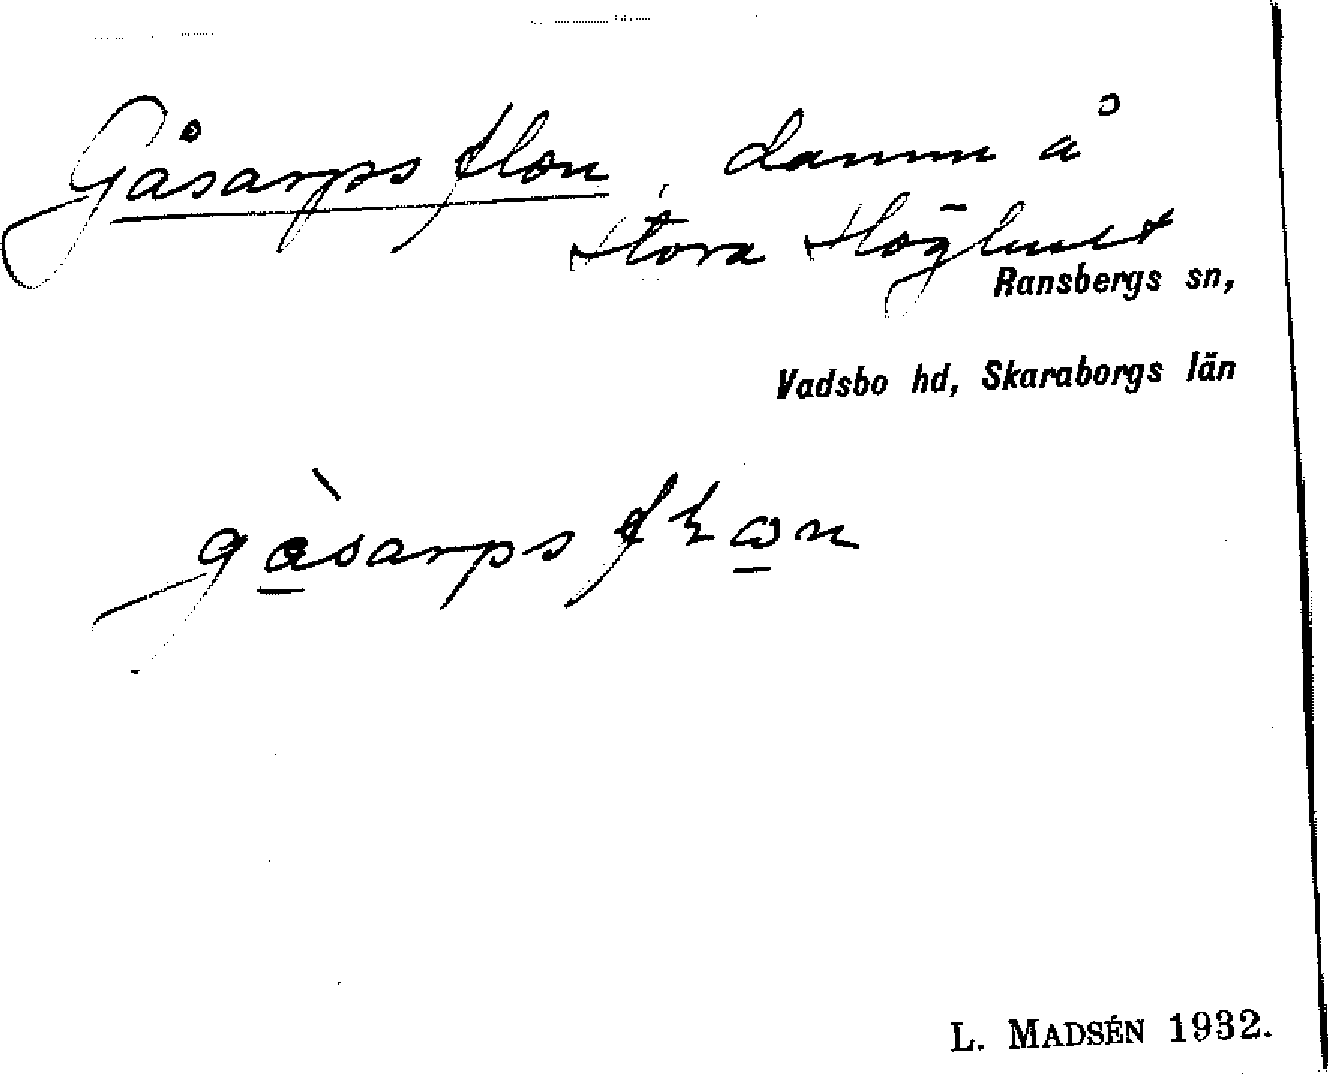 Gåsarps flon, damm å
Stora Höghult
Ransbergs sn,
Vadsbo hd, Skaraborgs län
L. MADSÉN 1932.